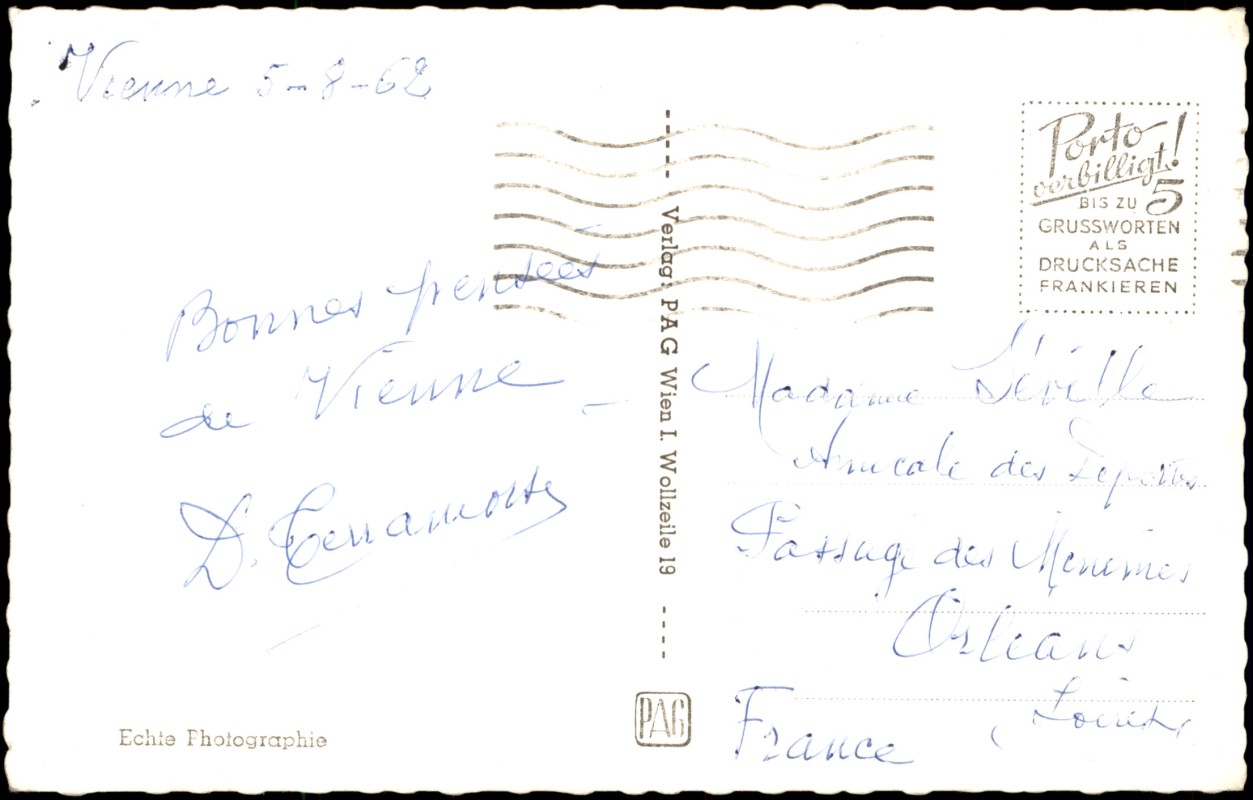 Vienne 5-8-62
Bonnes pensées
de Vienne
D.
Echte Photographie
Verlag: PAG Wien I. Wollzeile 19
PAG
Porto
verbilligt!
BIS ZU 5
GRUSSWORTEN
ALS
DRUCKSACHE
FRANKIEREN
Madame
Amicale des Déportés
Passage des Minimes
Orléans
(Loiret)
France